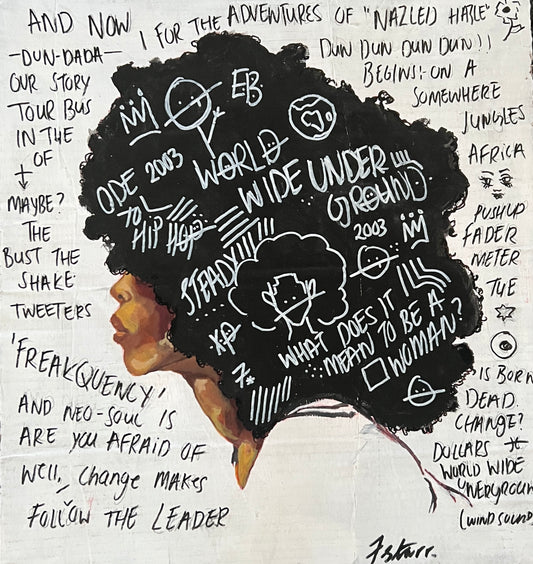 AND NOW
I FOR THE ADVENTURES OF "NAZLED HABLE"
—DUN-DADA—
DUN DUN DUN DUN!!
OUR STORY
BEGINS:- ON A
TOUR BUS
SOMEWHERE
IN THE
JUNGLES
OF
AFRICA
MAYBE?
THE
BUST THE
SHAKE
TWEETERS
PUSHUP
FADER
METER
THE
IS BORN
DEAD
CHANGE?
DOLLARS
WORLD WIDE
UNERGROUN
(WIND SOUND
EB
ODE 2003
TO
HIP HOP
WORLD
WIDE UNDER
GROUND
2003
STEADY
WHAT DOES IT
MEAN TO BE A
WOMAN?
XP
N*
'FREAKQUENCY'
AND NEO-SOUL IS
ARE YOU AFRAID OF
WELL, CHANGE MAKES
FOLLOW THE LEADER